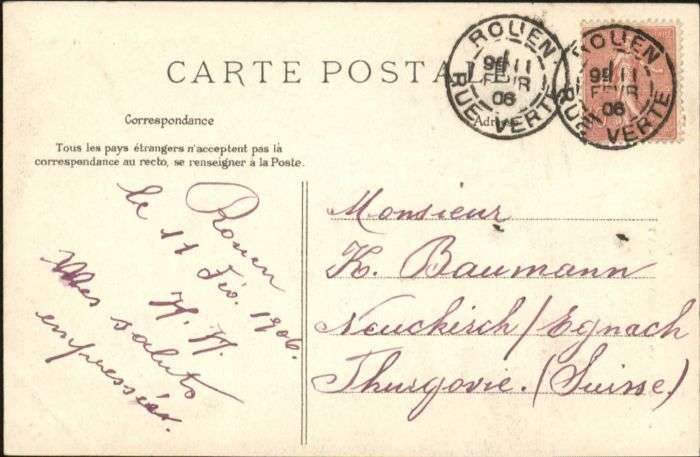 CARTE POSTA
ROUEN
11
FEVR
06
RUE VERTE
ROUEN
11
FEVR
06
RUE VERTE
Correspondance
Tous les pays étrangers n'acceptent pas là
correspondance au recto, se renseigner à la Poste.
Rouen
le 11 Fév. 1906.
Mes saluts
empressés.
Monsieur
K. Baumann
Neuckirch/Egnach
Thurgovie. (Suisse)